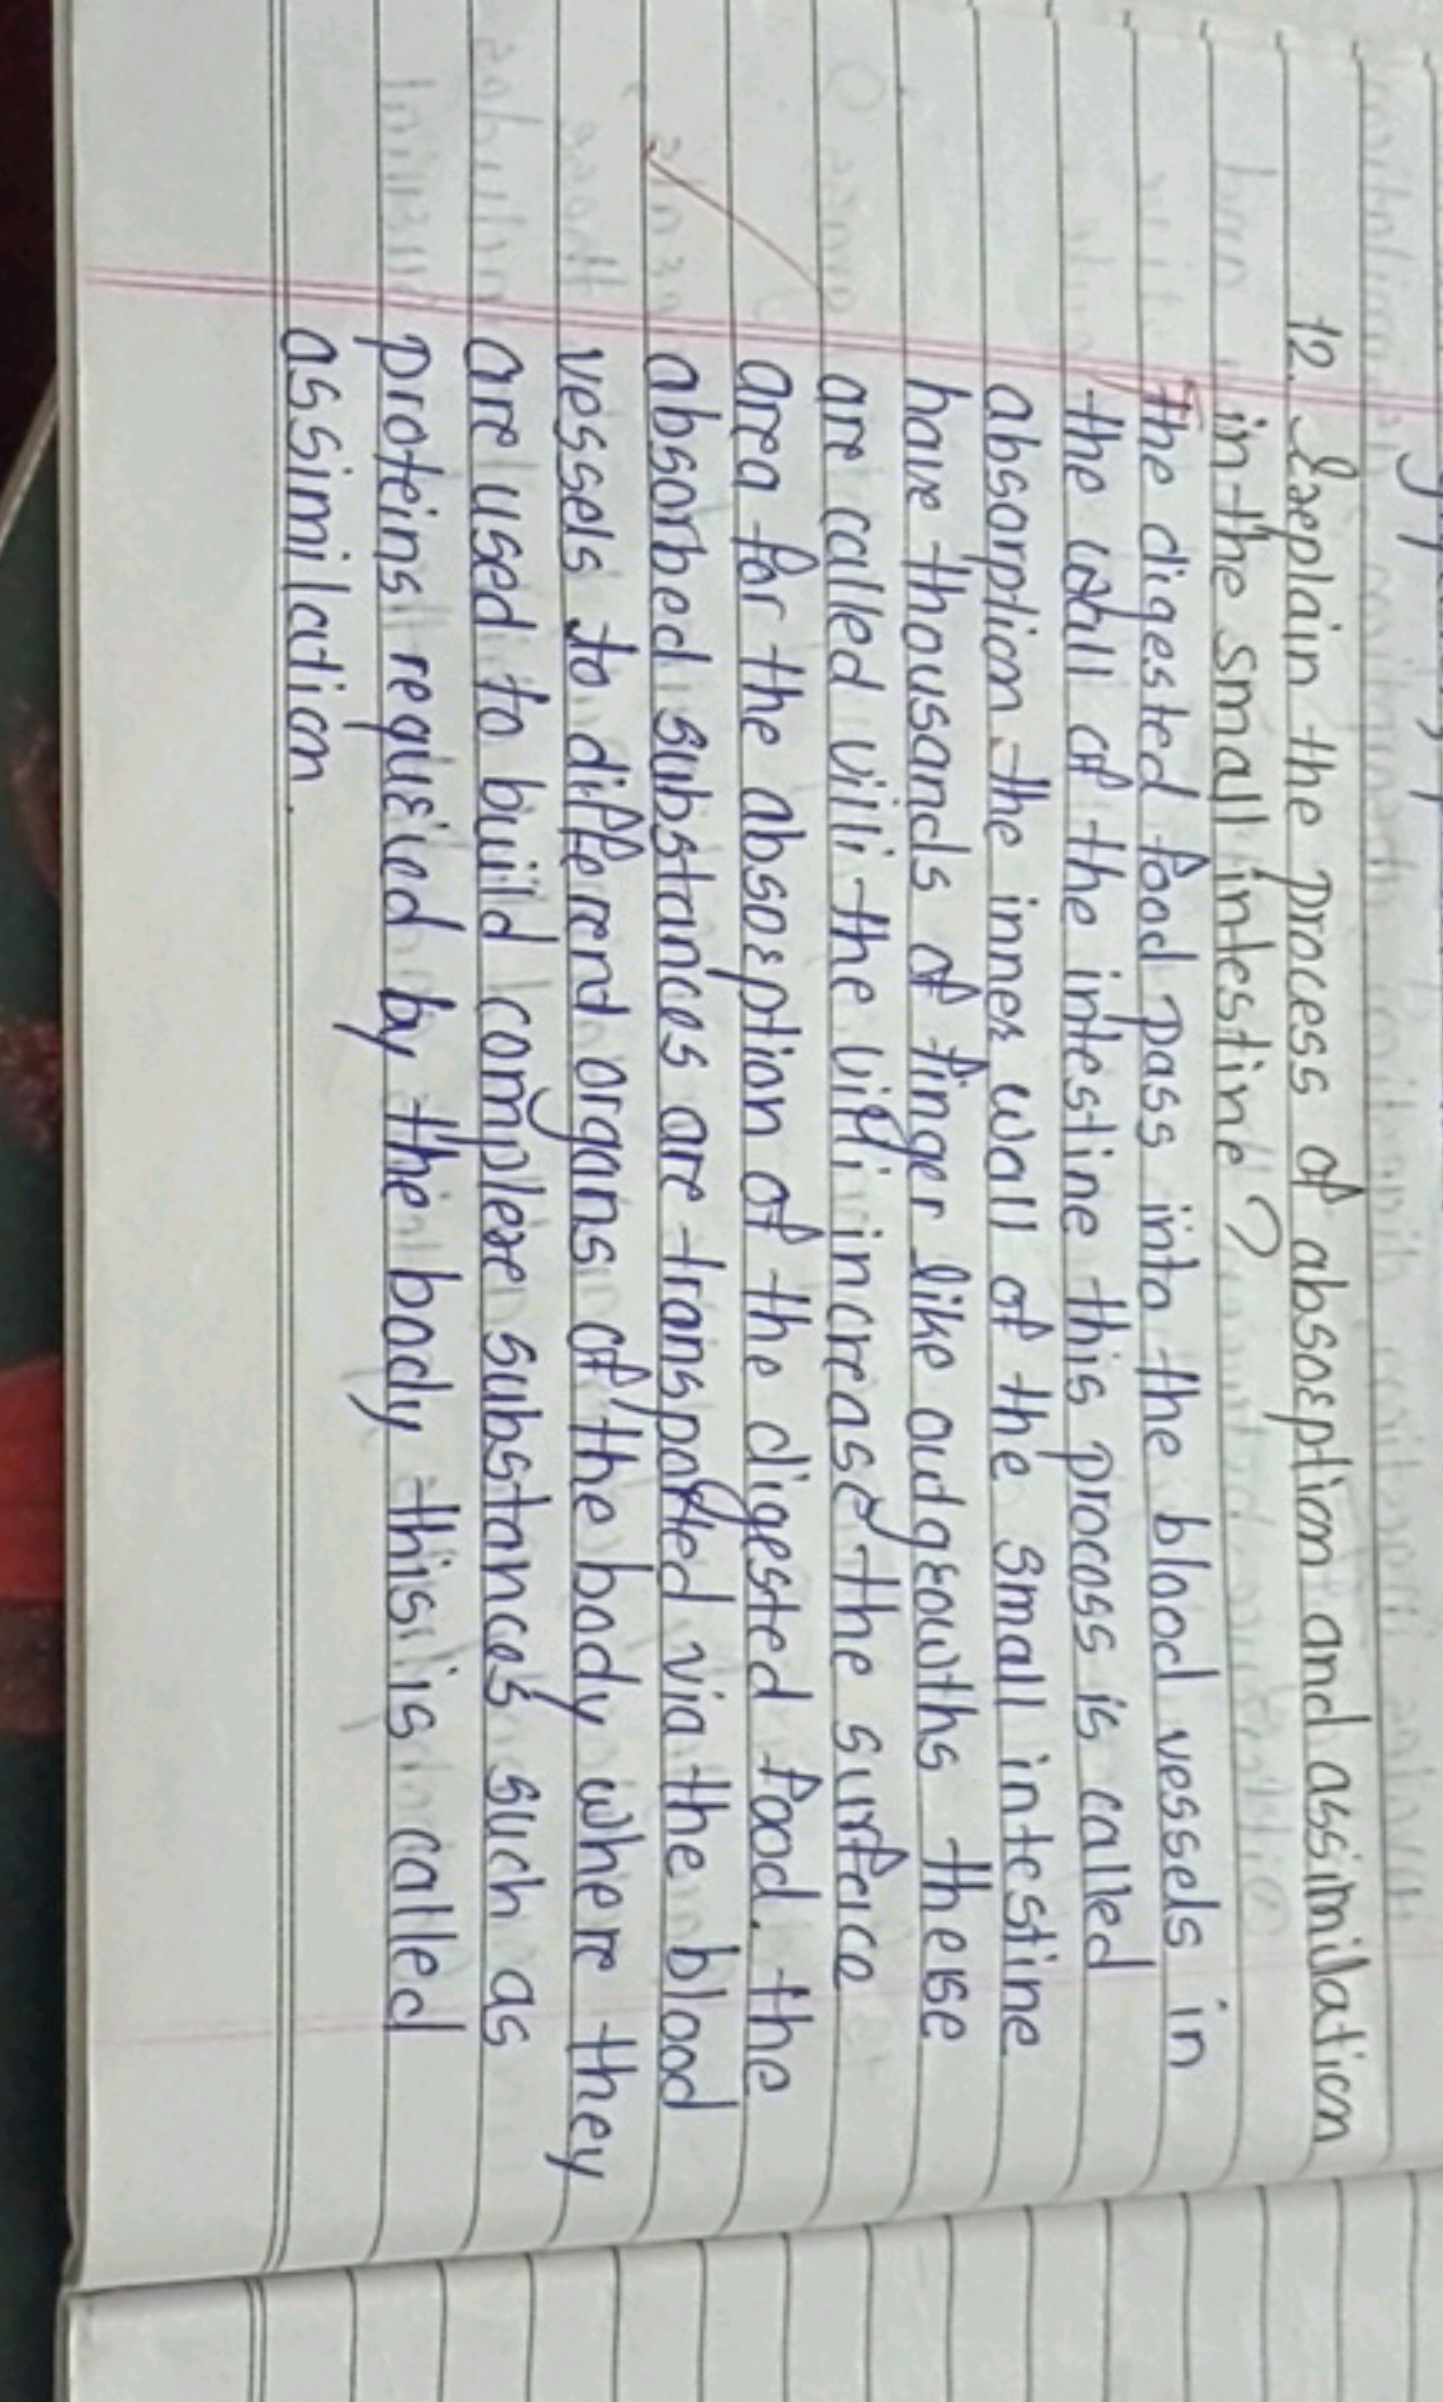 12. Explain the process of absorption and assimilation
in the small intestine?
the digested food pass into the blood vessels in
the wall of the intestine this process is called
absorption the inner wall of the small intestine
have thousands of finger like outgrowths these
are called villi the villi increase the surface
area for the absorption of the digested food. the
absorbed substances are transported via the blood
vessels to different organs of the body where they
are used to build complex substances such as
proteins required by the body this is called
assimilation.